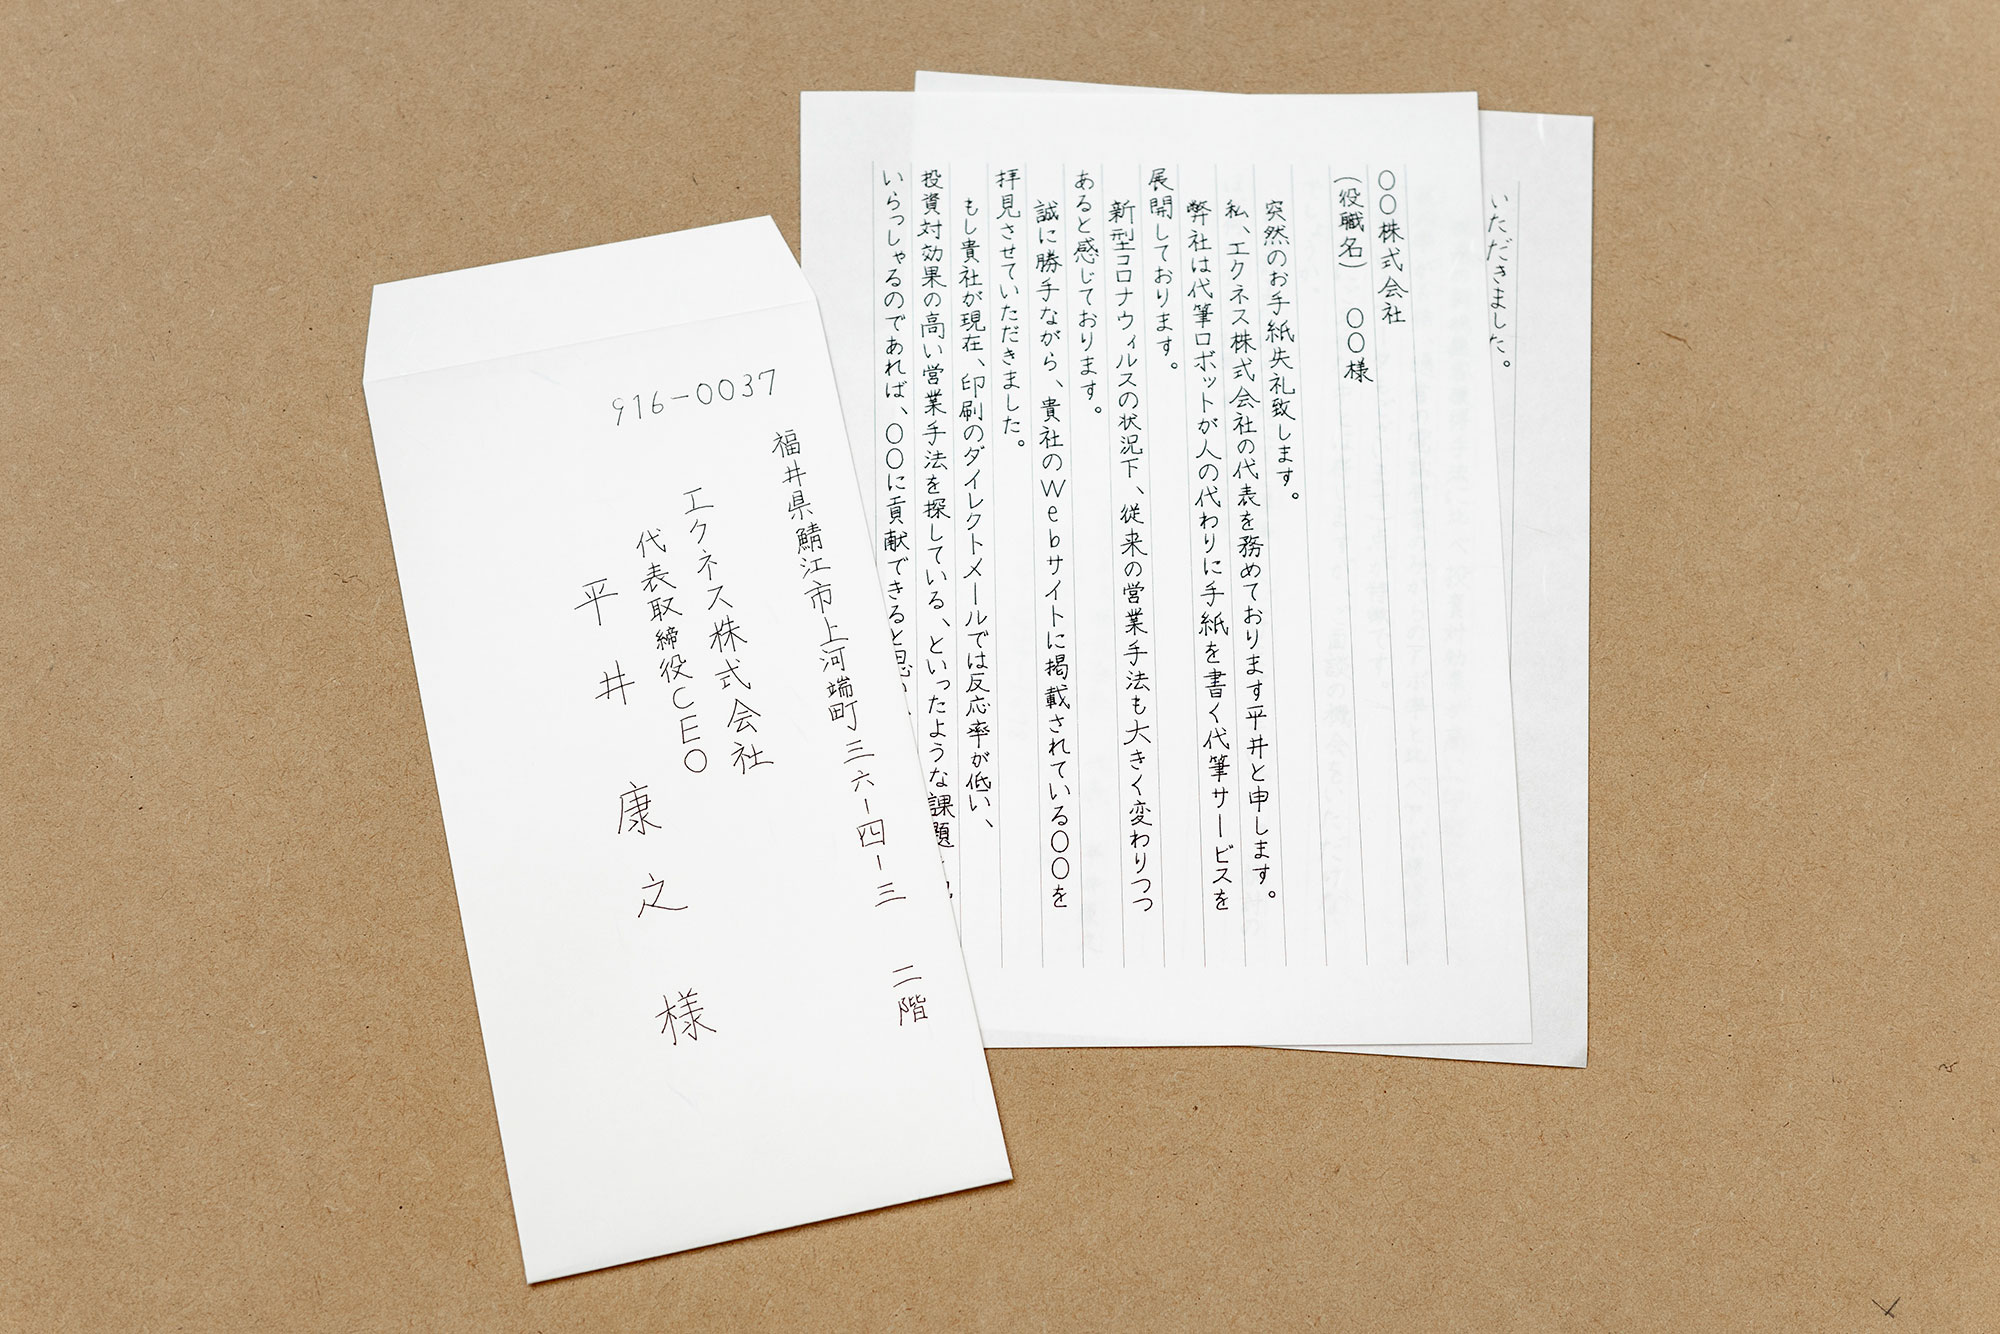 916-0037
福井県鯖江市上河端町三六-四-三 二階
エクネス株式会社
代表取締役CEO
平井 康之 様
〇〇株式会社
(役職名) 〇〇様
突然のお手紙失礼致します。
私、エクネス株式会社の代表を務めております平井と申します。
弊社は代筆ロボットが人の代わりに手紙を書く代筆サービスを
展開しております。
新型コロナウィルスの状況下、従来の営業手法も大きく変わりつつ
あると感じております。
誠に勝手ながら、貴社のWebサイトに掲載されている〇〇を
拝見させていただきました。
もし貴社が現在、印刷のダイレクトメールでは反応率が低い、
投資対効果の高い営業手法を探している、といったような課題
いらっしゃるのであれば、〇〇に貢献できると思い
いただきました。